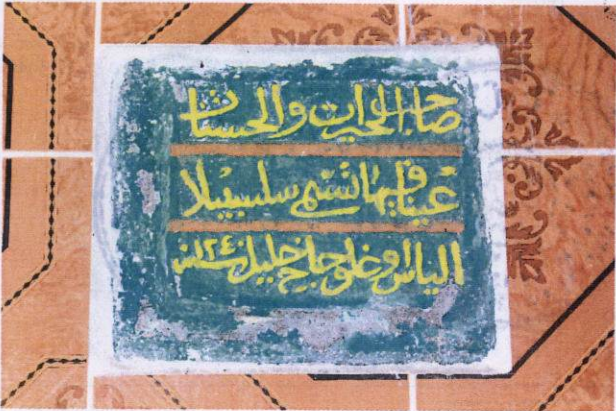 صاحب الخيرات والحسنات
عينا فيها تسمى سلسبيلا
الياس اوغلو حاج خليل سنه ١٢٤